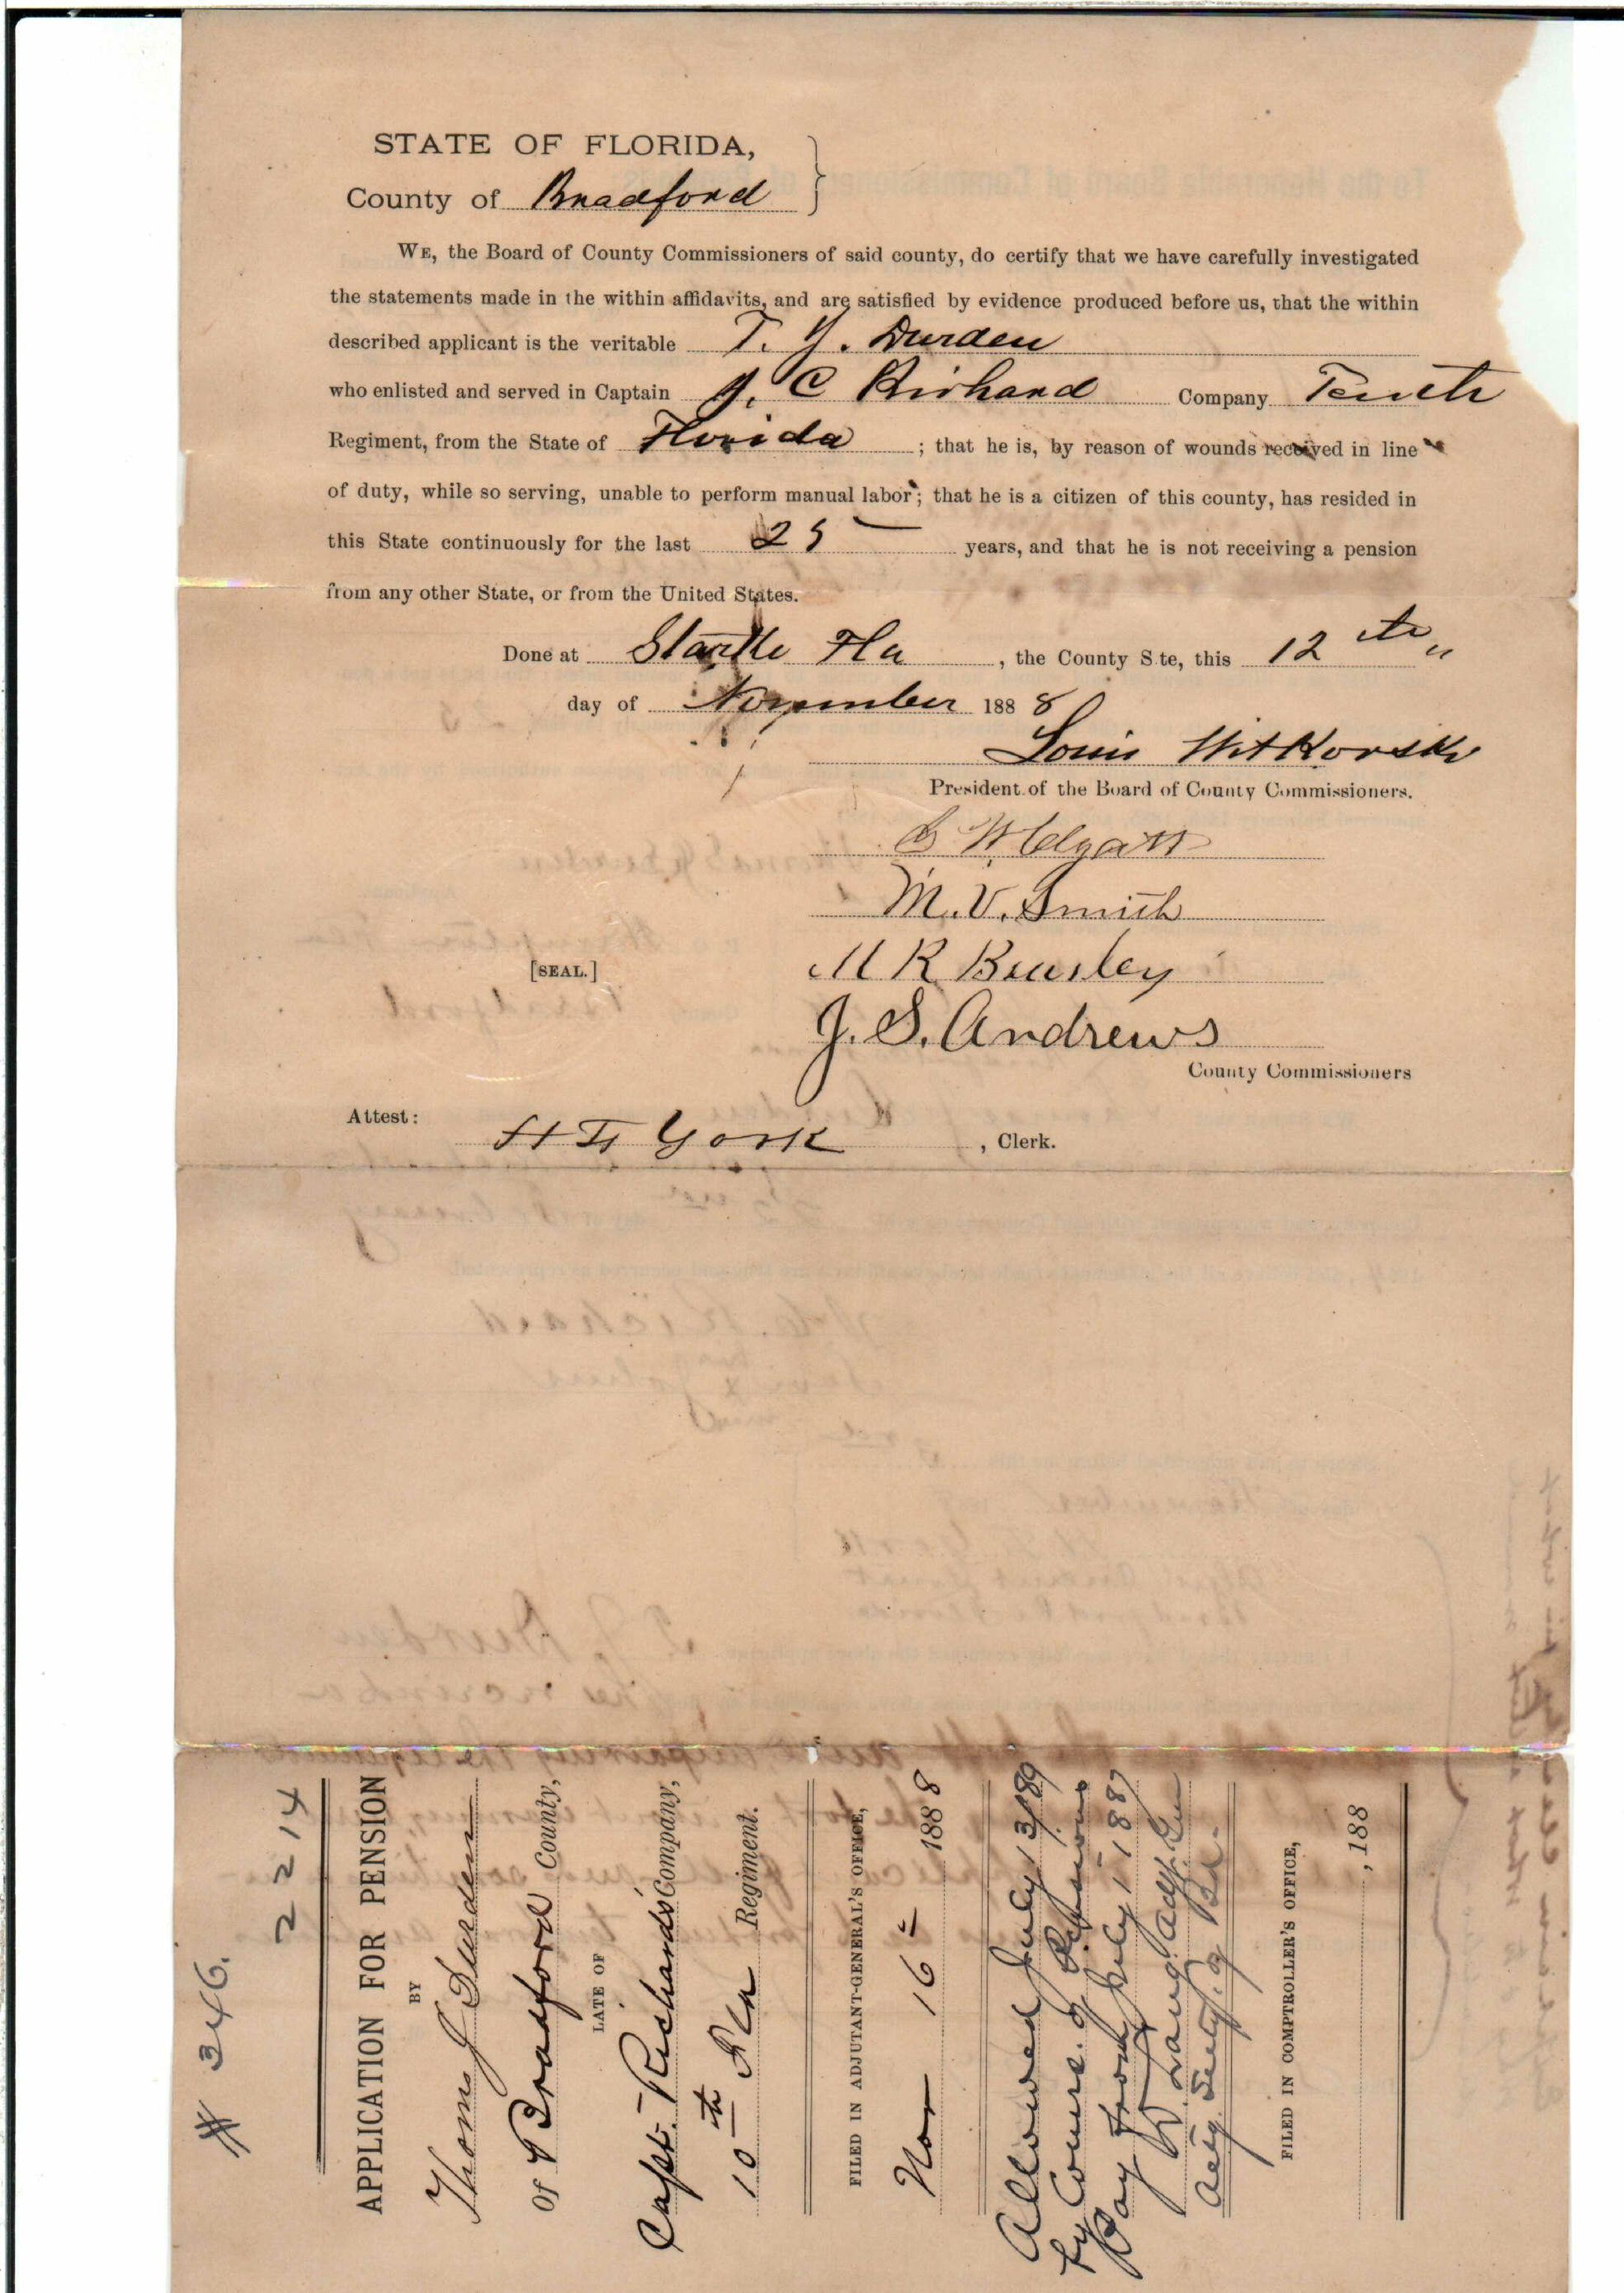 STATE OF FLORIDA,
County of Bradford
WE, the Board of County Commissioners of said county, do certify that we have carefully investigated
the statements made in the within affidavits, and are satisfied by evidence produced before us, that the within
described applicant is the veritable T. J. Durden
who enlisted and served in Captain J. C Richard Company Tenth
Regiment, from the State of Florida ; that he is, by reason of wounds received in line
of duty, while so serving, unable to perform manual labor; that he is a citizen of this county, has resided in
this State continuously for the last 25 years, and that he is not receiving a pension
from any other State, or from the United States.
Done at Starke Fla , the County S te, this 12th
day of November 1888
Louis Witkovski
President of the Board of County Commissioners.
M. V. Smith
M R Beasley
J. S. Andrews
County Commissioners
[SEAL.]
Attest: H F York , Clerk.
# 346.
2214
APPLICATION FOR PENSION
BY
Thomas J Durden
Of Bradford County,
LATE OF
Capt. Richards Company,
10th Fla Regiment.
FILED IN ADJUTANT-GENERAL'S OFFICE,
Nov 16 1888
Allowed July 13/89
by Comrs. of Pensions
Pay from July 1 1887
D. Lang. Adjt. Gen
Actg Secty. of Bd.
FILED IN COMPTROLLER'S OFFICE,
, 188